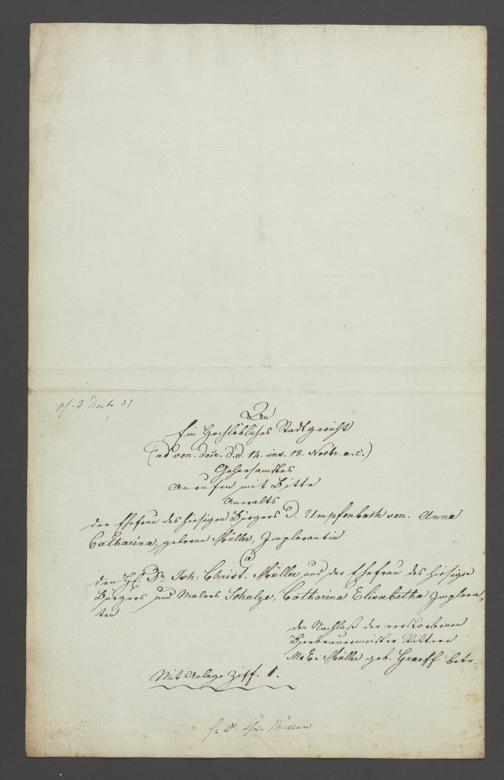 An
Ein Hochlöbliches Stadtgericht
(ad ven. decr. d.d. 14. ins. 18. Novbr. a. c.)
Gehorsamstes
Anrufen mit Bitte
Anwalts
der Ehefrau des hiesigen Bürgers D. Umpfenbach sen. Anna
Catharina, geborne Müller, Implorantin
Ca
den Dr. Joh. Christ. Müller und der Ehefrau des hiesigen
Bürgers und Malers Schulze, Catharina Elisabetha Implora-
ten
den Nachlaß der verstorbenen
Bierbrauermeister Wittwe
M. E. Müller geb. Graeff betr.
Mit Anlage Ziff. 1.